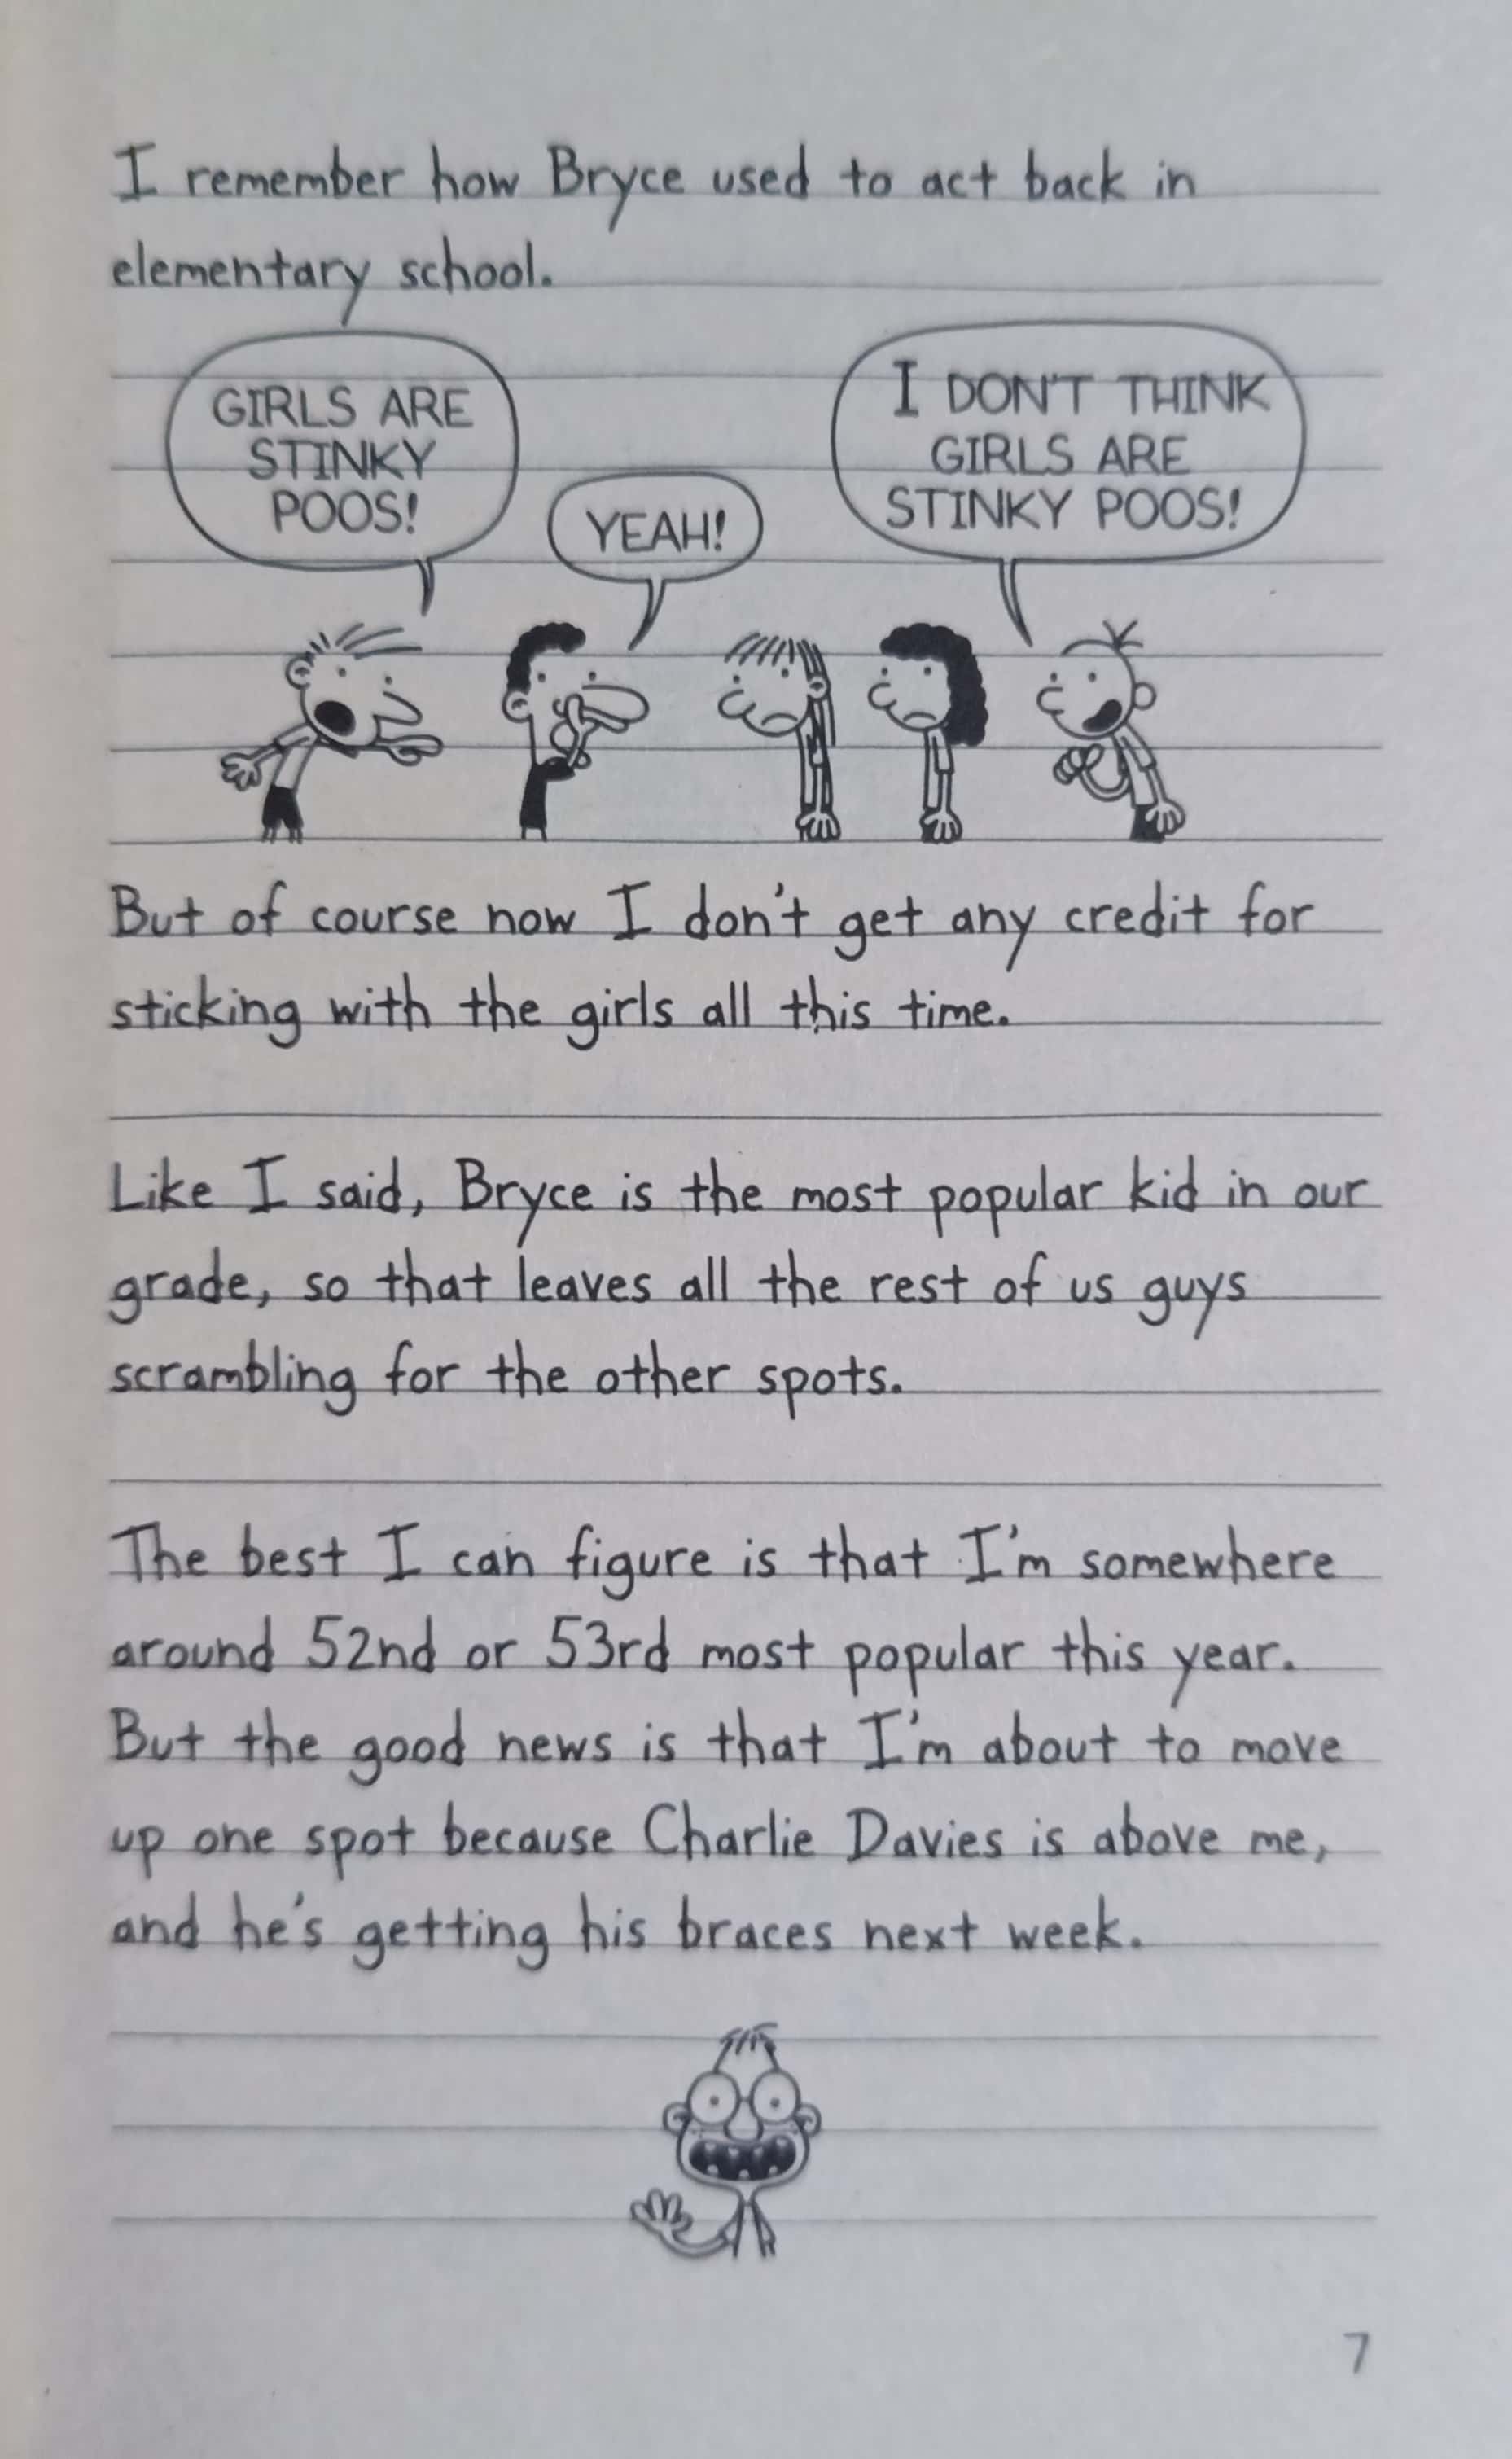 I remember how Bryce used to act back in
elementary school.
GIRLS ARE
STINKY
POOS!
YEAH!
I DON'T THINK
GIRLS ARE
STINKY POOS!
But of course now I don't get any credit for
sticking with the girls all this time.
Like I said, Bryce is the most popular kid in our
grade, so that leaves all the rest of us guys
scrambling for the other spots.
The best I can figure is that I'm somewhere
around 52nd or 53rd most popular this year.
But the good news is that I'm about to move
up one spot because Charlie Davies is above me,
and he's getting his braces next week.
7